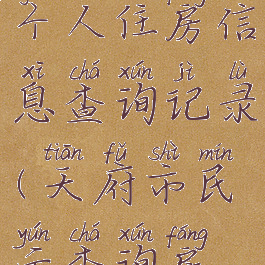 个人住房信
xī chá xún jì lù
息查询记录
tiān fǔ shì mín
(天府市民
yún chá xún fáng
云查询房